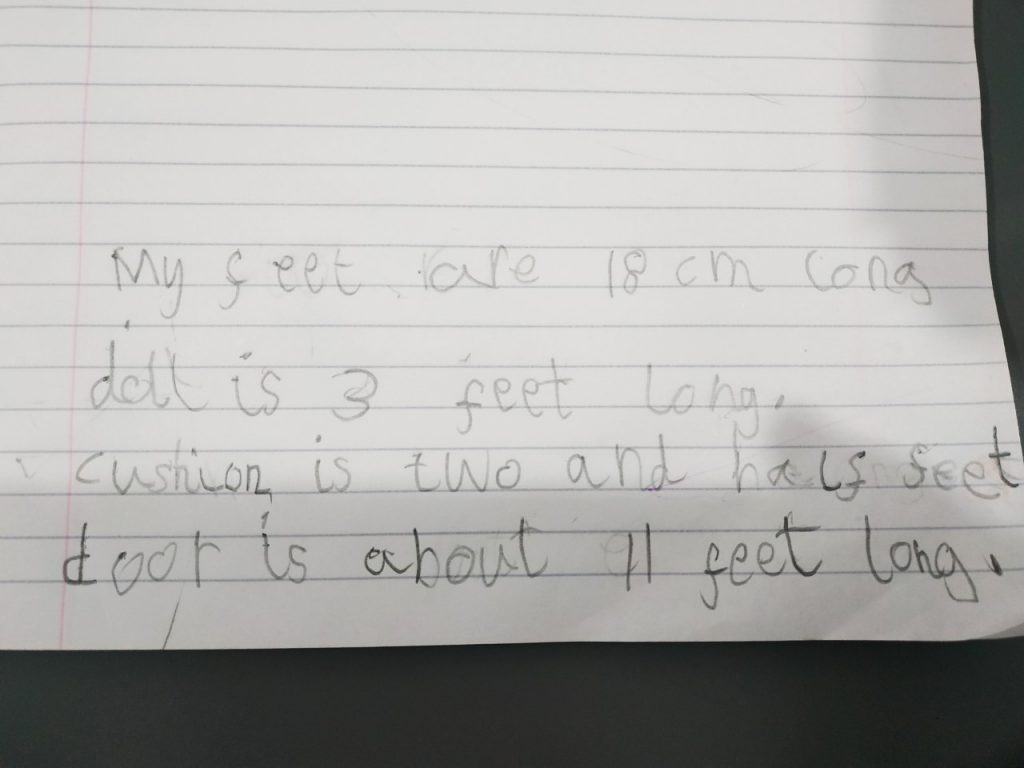 My feet are 18 cm long
doll is 3 feet long.
cushion is two and half feet
door is about 11 feet long.